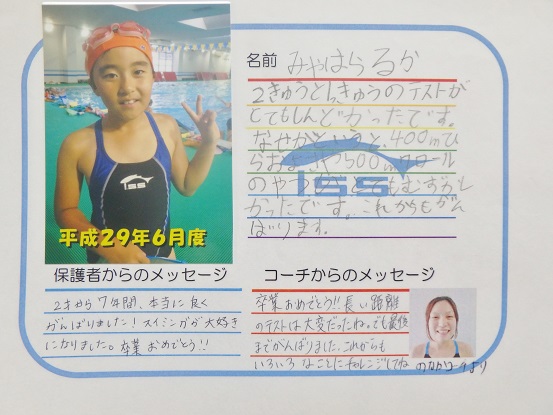 平成29年6月度
名前 みやはらるか
2きゅうと1きゅうのテストが
とてもしんどかったです。
なせかというと、400mひ
らおよぎや1500mクロール
のやつがとてもむずかし
かったです。これからもがん
ばります。
ISS
ISS
保護者からのメッセージ
2才から7年間、本当に良く
がんばりました！スイミングが大好き
になりました。卒業おめでとう！！
コーチからのメッセージ
卒業おめでとう！！長い距離
のテストは大変だったね。でも最後
までがんばりました。これからも
いろいろなことにチャレンジしてね
のなかコーチより